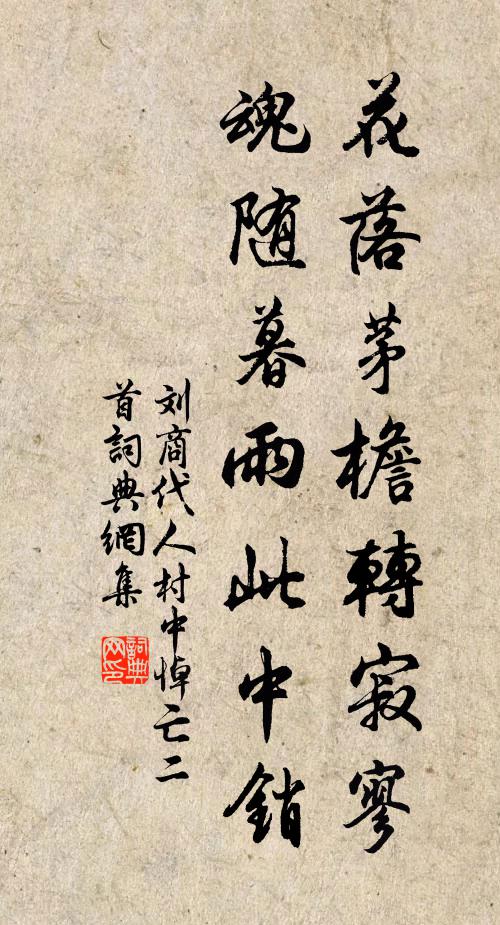 花落茅檐轉寂寥
魂随暮雨此中銷
刘商代人村中悼亡二
首詞典網集
詞典
网印